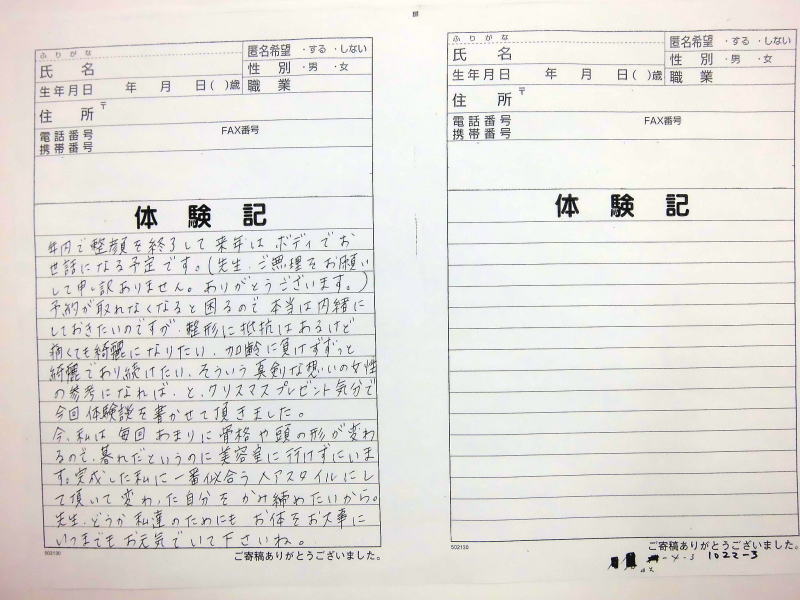 ふりがな
氏 名
匿名希望 ・する ・しない
性 別 ・男 ・女
生年月日 年 月 日( )歳 職 業
住 所 〒
電話番号 FAX番号
携帯番号
体験記
年内で整顔を終了して来年はボディでお
世話になる予定です。(先生、ご無理をお願い
して申し訳ありません。ありがとうございます。)
予約が取れなくなると困るので本当は内緒に
しておきたいのですが、整形に抵抗はあるけど
痛くても綺麗になりたい、加齢に負けずずっと
綺麗であり続けたい、そういう真剣な想いの女性
の参考になれば、と、クリスマスプレゼント気分で
今回体験談を書かせて頂きました。
今、私は毎回あまりに骨格や頭の形が変わ
るので、暮れだというのに美容室に行けずにいま
す。完成した私に一番似合うヘアスタイルにし
て頂いて変わった自分をかみ締めたいから。
先生、どうか私達のためにもお体をお大事に
いつまでもお元気でいて下さいね。
502130
ご寄稿ありがとうございました。
ふりがな
氏 名
匿名希望 ・する ・しない
性 別 ・男 ・女
生年月日 年 月 日( )歳 職 業
住 所 〒
電話番号 FAX番号
携帯番号
体験記
502130
ご寄稿ありがとうございました。
1022-3